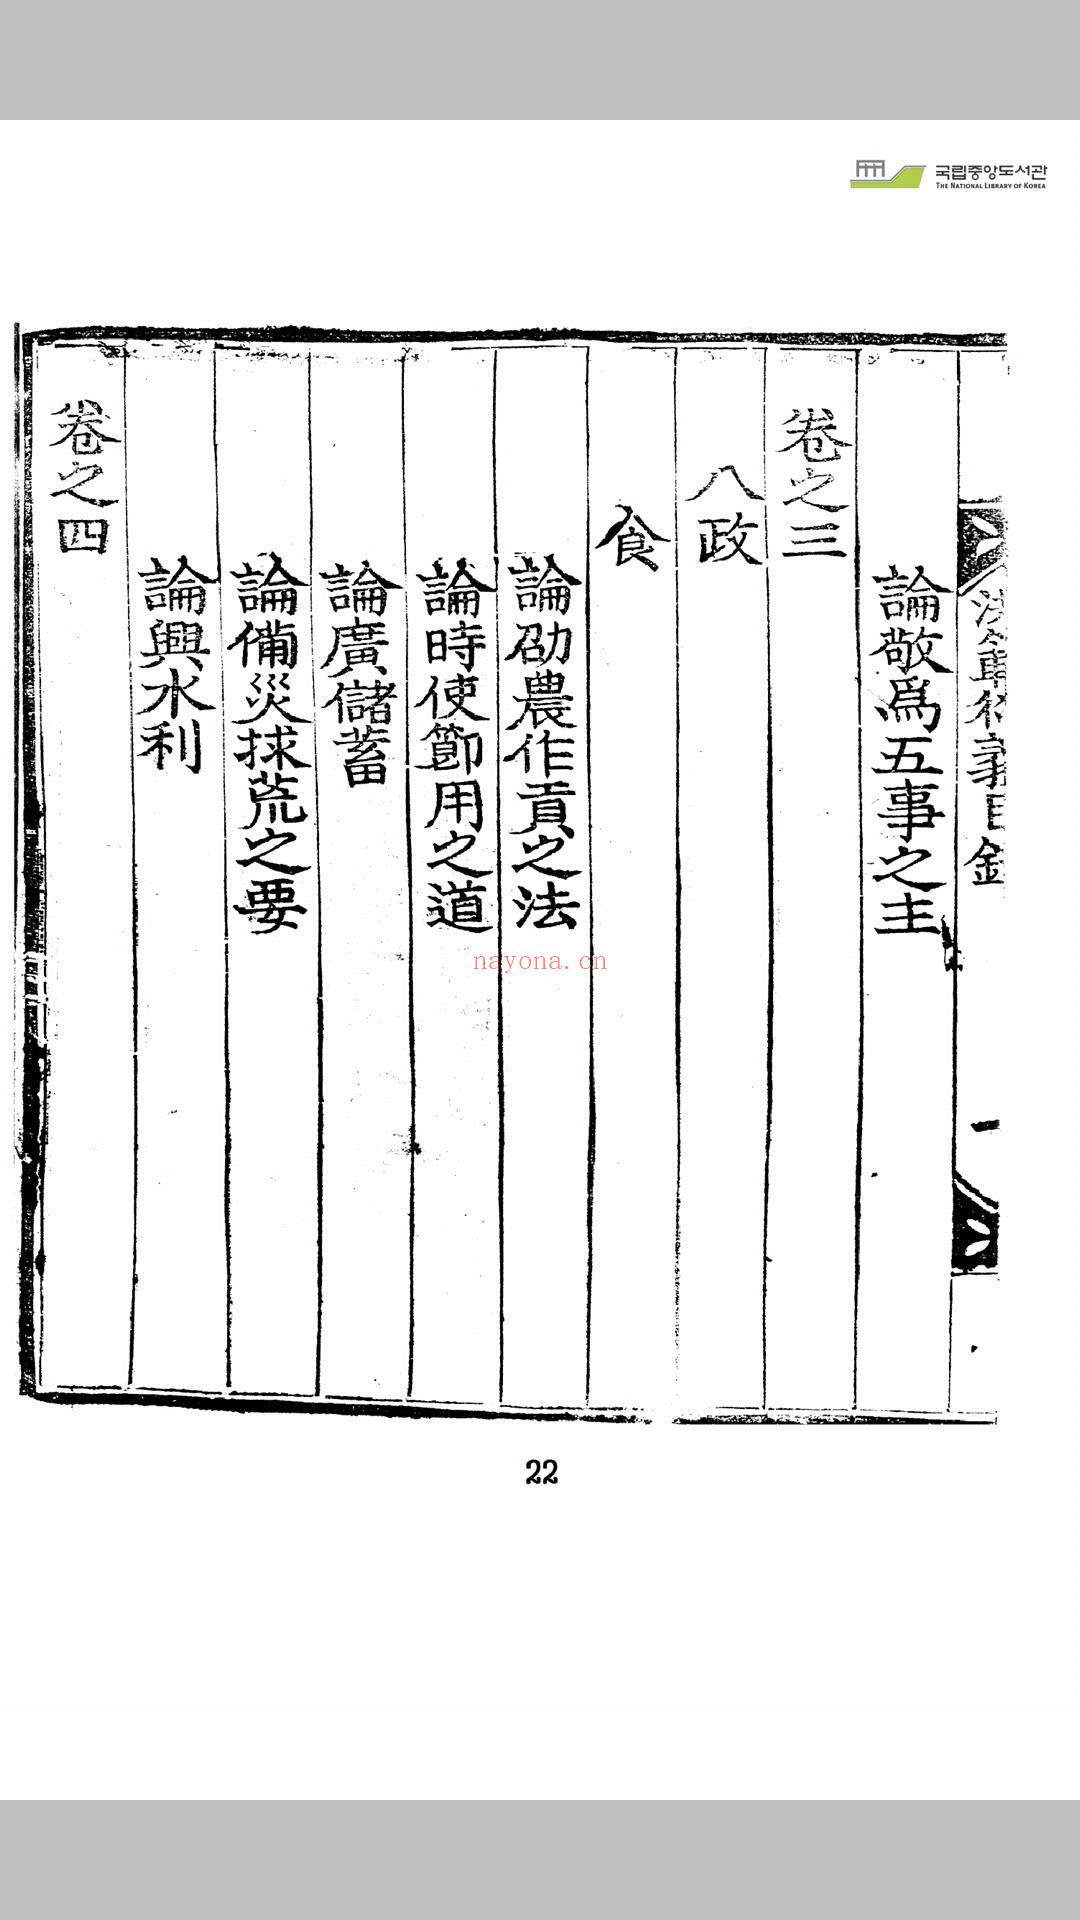 국립중앙도서관
THE NATIONAL LIBRARY OF KOREA
目
論敬爲五事之主
卷之三
八政
食
論劭農作貢之法
論時使節用之道
論廣儲蓄
論備災捄荒之要
論興水利
卷之四
nayona.cn
一
22